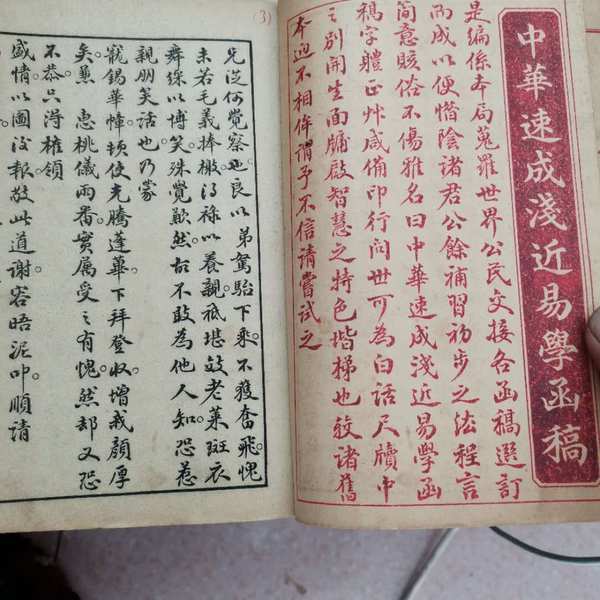 中華速成淺近易學函稿
是編係本局蒐羅世界公民交接各函稿選訂
而成以便惜陰諸君公餘補習初步之法程言
簡意賅俗不傷雅名曰中華速成淺近易學函
稿字體正艸咸備印行问世可為白話尺牘中
之別開生面牖啟智慧之特色堦梯也較諸舊
本迥不相侔謂予不信請嘗試之
3)
兄從何覺察也良以弟駕駘下乘不獲奮飛愧
未若毛義捧檄得祿以養親祗堪效老萊斑衣
舞綵以博笑殊覺歉然故不敢為他人知恐惹
親朋笑話也乃蒙
寵錫華幛頓使光騰蓬蓽下拜登收增我顏厚
矣蕙 惠桃儀兩番實屬受之有愧然却又恐
不恭只得權領
盛情以圖後報敬此道謝容晤泥叩順請